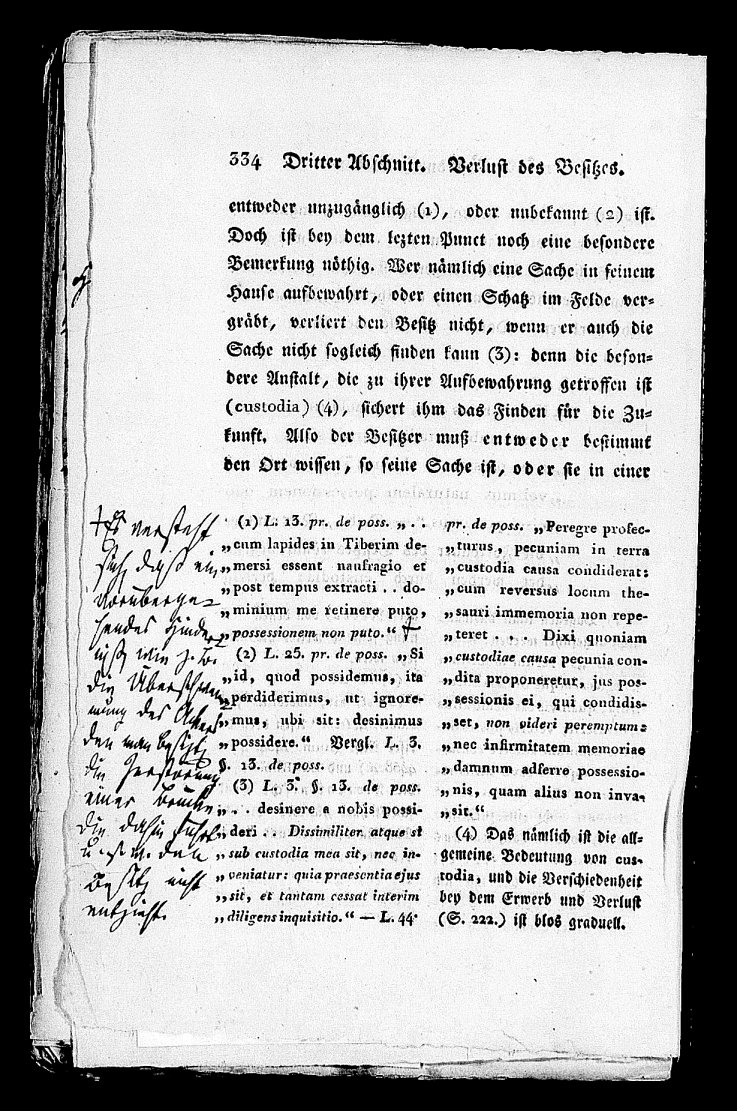 334 Dritter Abschnitt. Verlust des Besitzes.
entweder unzugänglich (1), oder unbekannt (2) ist.
Doch ist bey dem lezten Punct noch eine besondere
Bemerkung nöthig. Wer nämlich eine Sache in seinem
Hause aufbewahrt, oder einen Schatz im Felde ver=
gräbt, verliert den Besitz nicht, wenn er auch die
Sache nicht sogleich finden kann (3): denn die beson=
dere Anstalt, die zu ihrer Aufbewahrung getroffen ist
(custodia) (4), sichert ihm das Finden für die Zu=
kunft. Also der Besitzer muß entweder bestimmt
den Ort wissen, so seine Sache ist, oder sie in einer
(1) L. 13. pr. de poss. „ . .
„cum lapides in Tiberim de-
„mersi essent naufragio et
„post tempus extracti . . do-
„minium me retinere puto,
„possessionem non puto.“ †
(2) L. 25. pr. de poss. „Si
„id, quod possidemus, ita
„perdiderimus, ut ignore-
„mus, ubi sit: desinimus
„possidere.“ Vergl. L. 3.
§. 13. de poss.
(3) L. 3. §. 13. de poss.
„ . . desinere a nobis possi-
„deri . . Dissimiliter atque si
„sub custodia mea sit, nec in-
„veniatur: quia praesentia ejus
„sit, et tantam cessat interim
„diligens inquisitio.“ — L. 44.
pr. de poss. „Peregre profec-
„turus, pecuniam in terra
„custodia causa condiderat:
„cum reversus locum the-
„sauri immemoria non repe-
„teret . . . Dixi quoniam
„custodiae causa pecunia con-
„dita proponeretur, jus pos-
„sessionis ei, qui condidis-
„set, non videri peremptum:
„nec infirmitatem memoriae
„damnum adferre possessio-
„nis, quam alius non inva-
„sit.“
(4) Das nämlich ist die all=
gemeine Bedeutung von cus-
todia, und die Verschiedenheit
bey dem Erwerb und Verlust
(S. 222.) ist blos graduell.
† Es versteht
sich daß ein
vorüberge=
hendes Hinder=
niß, wie z. B.
die Überschwem=
mung des Ackers
den man besitzt,
die Zerstörung
einer Brücke
die dahin führt
u. s. w. den
Besitz nicht
entzieht.